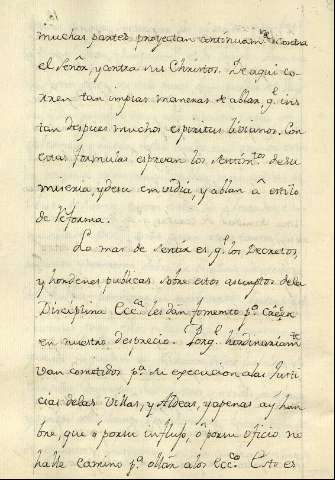 muchas partes proyectan continuam.te contra
el Señor, y contra sus Christos. De aqui co-
rren tan impias maneras de ablar, q.e ins
tan despues muchos espiritus livianos. Con
estas formulas espresan los sentim.tos de su
miseria, y de su embidia, y ablan â estilo
de Reforma.
Lo mas de sentir es, q.e los Decretos,
y hordenes publicas sobre estos asumptos de la
Disciplina Ecc.ca les dan fomento p.a caer
en nuestro desprecio. Porq.e hordinariam.te
van cometidos p.a su execucion a las Justi
cias de las Villas, y Aldeas, y apenas ay hom
bre, que ó por su influjo, ó por su oficio no
halle camino p.a ollar a los Ecc.cos Esto es